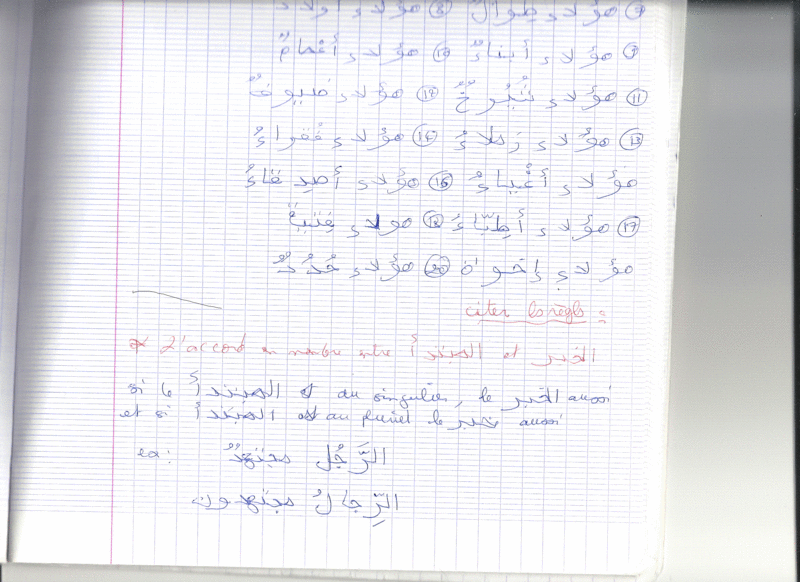 ⑦ هؤلاء طوالٌ ⑧ هؤلاء أولاد
⑨ هؤلاء أبناءٌ ⑩ هؤلاء أعمامٌ
⑪ هؤلاء شُيُوخٌ ⑫ هؤلاء ضيوفٌ
⑬ هؤلاء زملاءٌ ⑭ هؤلاء فقراءٌ
هؤلاء أغنياءٌ ⑯ هؤلاء أصدقاءٌ
⑰ هؤلاء أطِبّاءٌ ⑱ هولاء فتيةٌ
هؤلاء إخوة ⑳ هؤلاء جُدُدٌ
citer les règles :
* L'accord en nombre entre المبتدأ et الخبر
si le المبتدأ est au singulier, le الخبر aussi
et si المبتدأ est au pluriel le خبر aussi
ex: الرَّجُل مجتهدٌ
الرِّجالُ مجتهدون